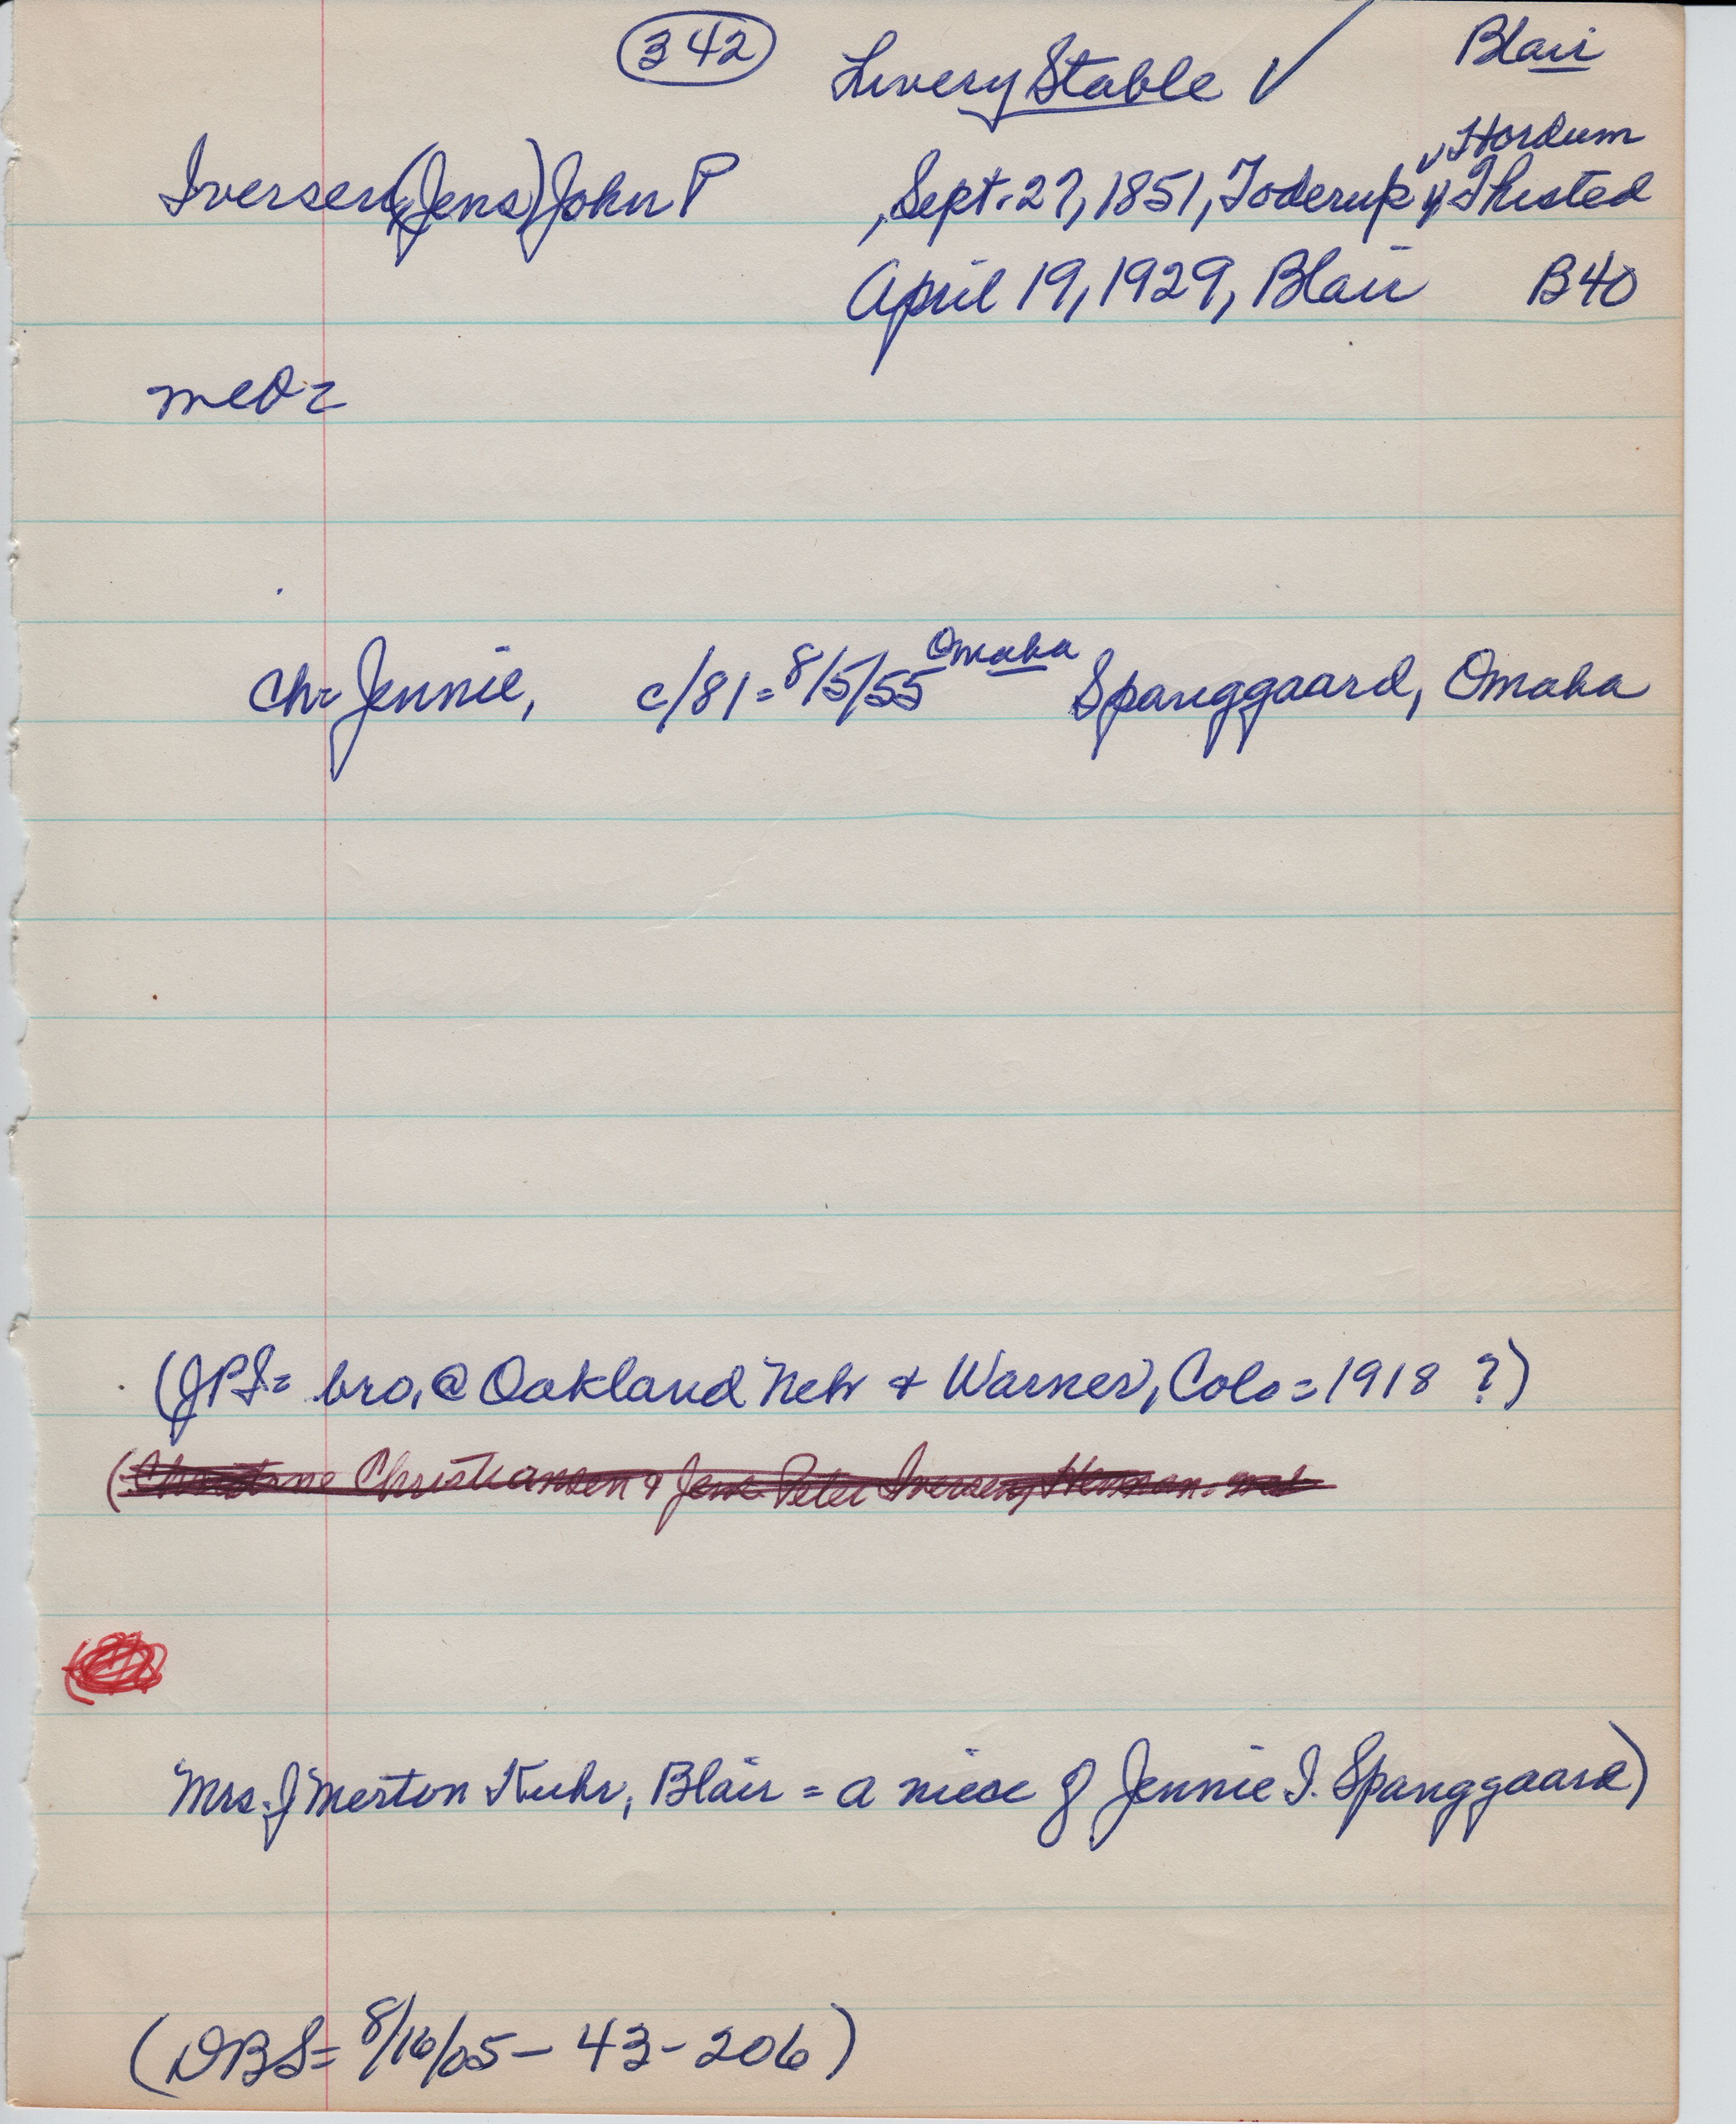 342 Livery Stable ✓ Blair
Hordum
Iversen, (Jens) John P , Sept. 27, 1851, Toderup v Thisted
April 19, 1929, Blair B40
md =
Ch = Jennie, c/81 = 8/5/55 Omaha Spanggaard, Omaha
(JPI = bro. @ Oakland Nebr + Warner, Colo = 1918 ?)
(Christine Christiansen & Jens Peter Iversen, Herman.
Mrs. J Merton Kuhr, Blair = a niece of Jennie I. Spanggaard)
(DBS = 8/16/05 - 43 - 206)